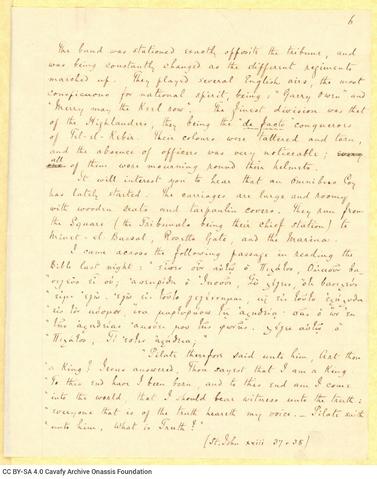 6
The band was stationed exactly opposite the tribune, and
was being constantly changed as the different regiments
marched up. They played several English airs, the most
conspicuous for national spirit, being, "Garry Owen" and
"Merry may the Keel row". The finest division was that
of the Highlanders, they being the "de facto" conquerors
of Tel-el-Kebir. Their colours were tattered and torn,
and the absence of officers was very noticeable;
all of them wore mourning round their helmets.
It will interest you to hear that an Omnibus Coy
has lately started. The carriages are large and roomy
with wooden seats and tarpaulin covers. They run from
the Square (the Tribunals being their chief station) to
Minet-el Bassal, Rosetta Gate, and the Marina.
I came across the following passage in reading the
Bible last night: " Εἶπεν οὖν αὐτῷ ὁ Πιλάτος, Οὐκοῦν βα-
σιλεὺς εἶ σύ; ἀπεκρίθη ὁ Ἰησοῦς, Σὺ λέγεις, ὅτι βασιλεύς
εἰμι ἐγώ. Ἐγὼ εἰς τοῦτο γεγέννημαι, καὶ εἰς τοῦτο ἐλήλυθα
εἰς τὸν κόσμον, ἵνα μαρτυρήσω τῇ ἀληθείᾳ· πᾶς ὁ ὢν ἐκ
τῆς ἀληθείας ἀκούει μου τῆς φωνῆς. λέγει αὐτῷ ὁ
Πιλάτος, Τί ἐστιν ἀλήθεια;"
"Pilate therefore said unto him, Art thou
a King? Jesus answered, Thou sayest that I am a King
To this end have I been born, and to this end am I come
into the world, that I should bear witness unto the truth:
everyone that is of the truth heareth my voice. — Pilate saith
unto him, What is Truth?"
(St. John xxiii 37 & 38)
CC BY-SA 4.0 Cavafy Archive Onassis Foundation